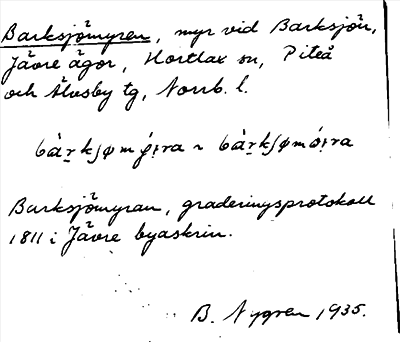 Barksjömyren, myr vid Barksjön,
Jävre ägor, Hortlax sn, Piteå
och Älvsby tg, Norrb. l.
bàr̲kʃømǿɪra ~ bàr̲kʃømóɪra
Barksjömyran, graderingsprotokoll
1811 i Jävre byaskrin.
B. Nygren 1935.